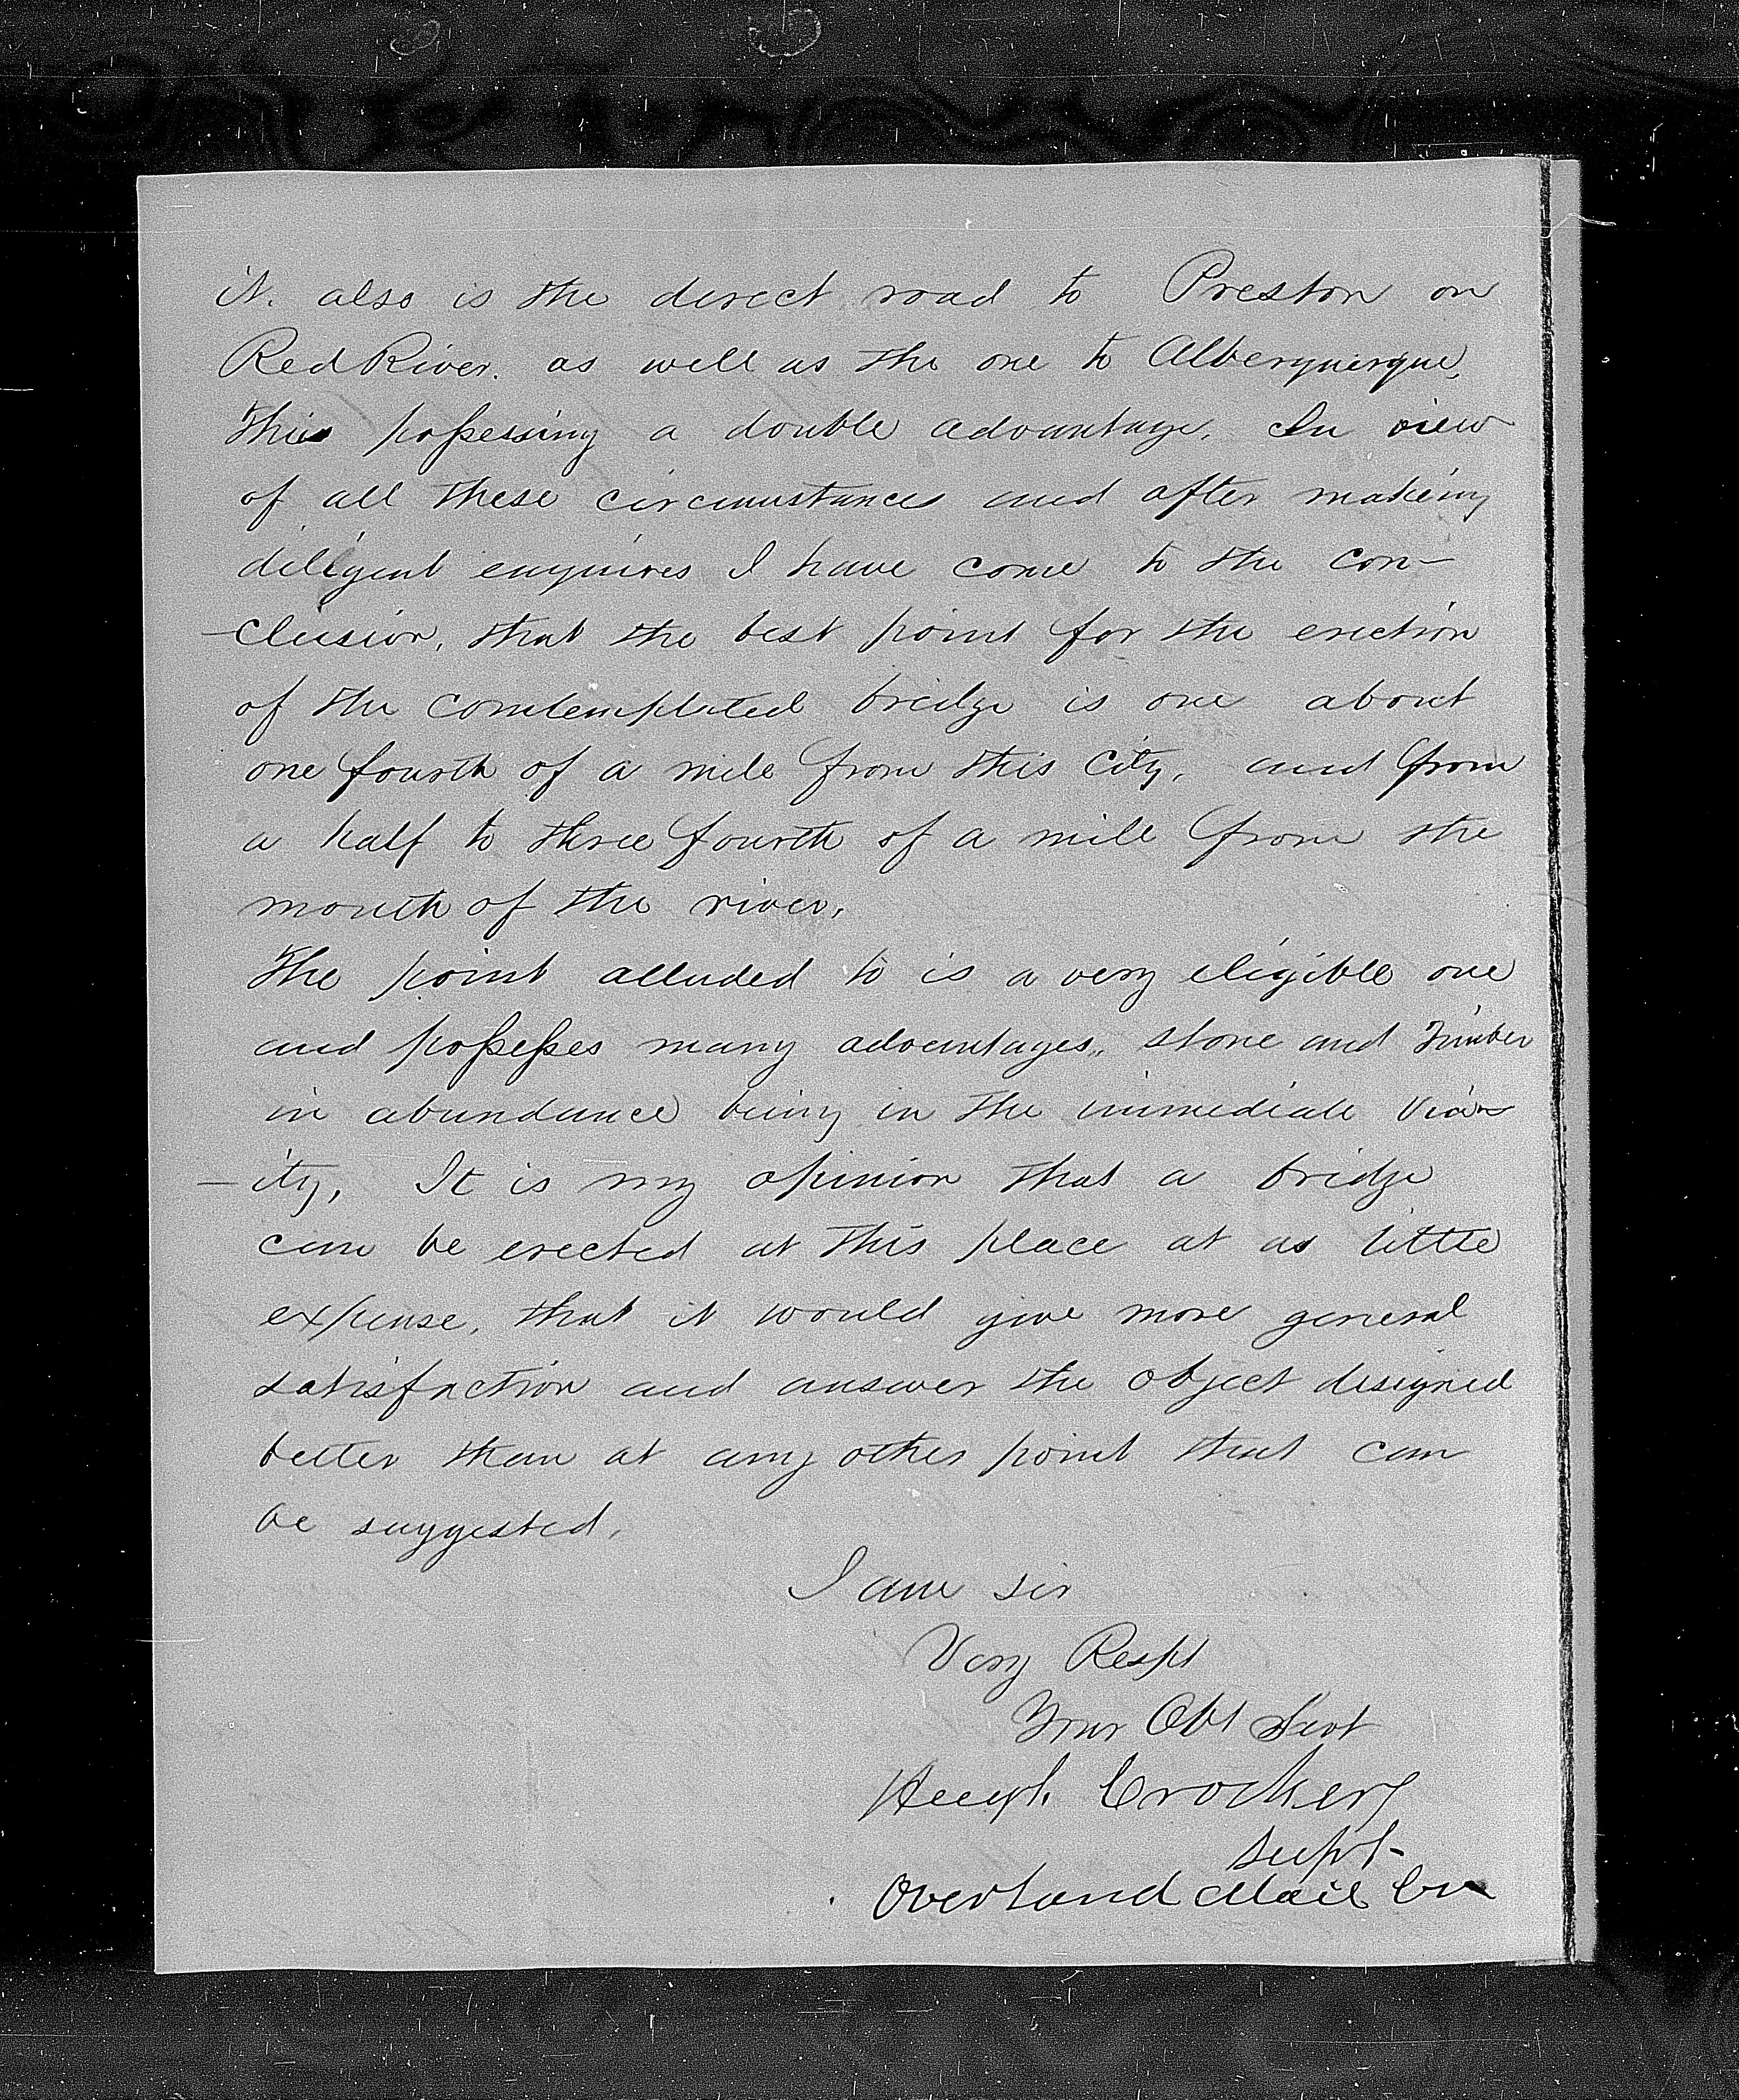 it. also is the direct road to Preston on
Red River. as well as the one to Alberquerque,
This possessing a double advantage. In view
of all these circumstances and after making
diligent enquires I have come to the con-
-clusion, that the best point for the erection
of the comtemplated bridge is one about
one fourth of a mile from this City, and from
a half to three fourth of a mile from the
mouth of the river.
The point alluded to is a very eligible one
and possesses many advantages,, stone and Timber
in abundance being in the immediate Vicin
-ity, It is my opinion that a bridge
can be erected at this place at as little
expense, that it would give more general
satisfaction and answer the object designed
better than at any other point that can
be suggested.
I am sir
Very Respt
Your Obt Servt
Hugh Crocker
Supt-
Overland Mail Co